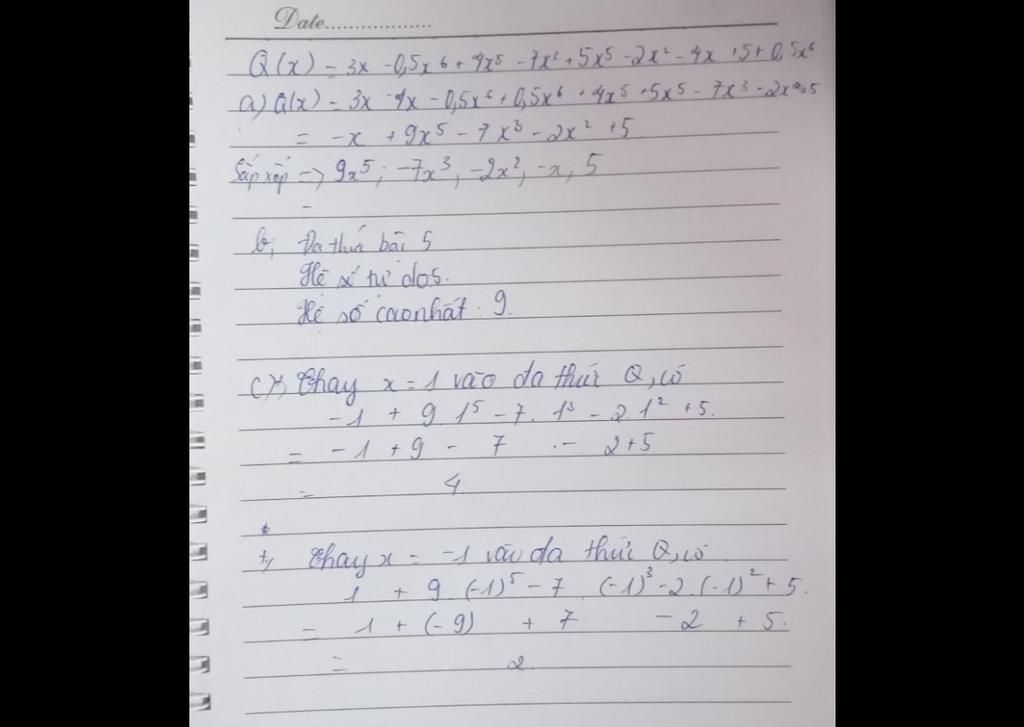 Date..................
Q(x) = 3x - 0,5x⁶ + 4x⁵ - 7x³ + 5x⁵ - 2x² - 4x + 5 + 0,5x⁶
a) Q(x) = 3x - 4x - 0,5x⁶ + 0,5x⁶ + 4x⁵ + 5x⁵ - 7x³ - 2x² + 5
= -x + 9x⁵ - 7x³ - 2x² + 5
Sắp xếp => 9x⁵; -7x³, -2x², -x, 5
b, Đa thức bâc 5
Hệ số tự do 5.
Hệ số cao nhất : 9.
c) +, Thay x = 1 vào đa thức Q, có
-1 + 9 . 1⁵ - 7 . 1³ - 2 . 1² + 5.
= -1 + 9 - 7 - 2 + 5
= 4
+, Thay x = -1 vào đa thức Q, có
1 + 9 . (-1)⁵ - 7 (-1)³ - 2 . (-1)² + 5.
= 1 + (-9) + 7 - 2 + 5.
= 2